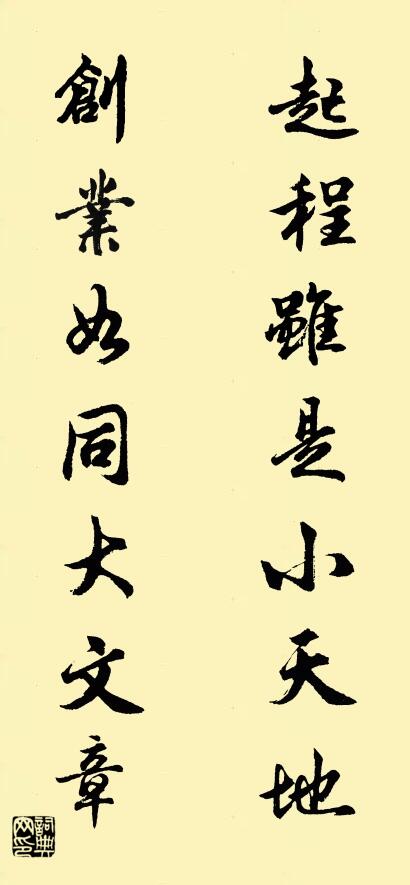 起程雖是小天地
創業如同大文章
詞典
网印